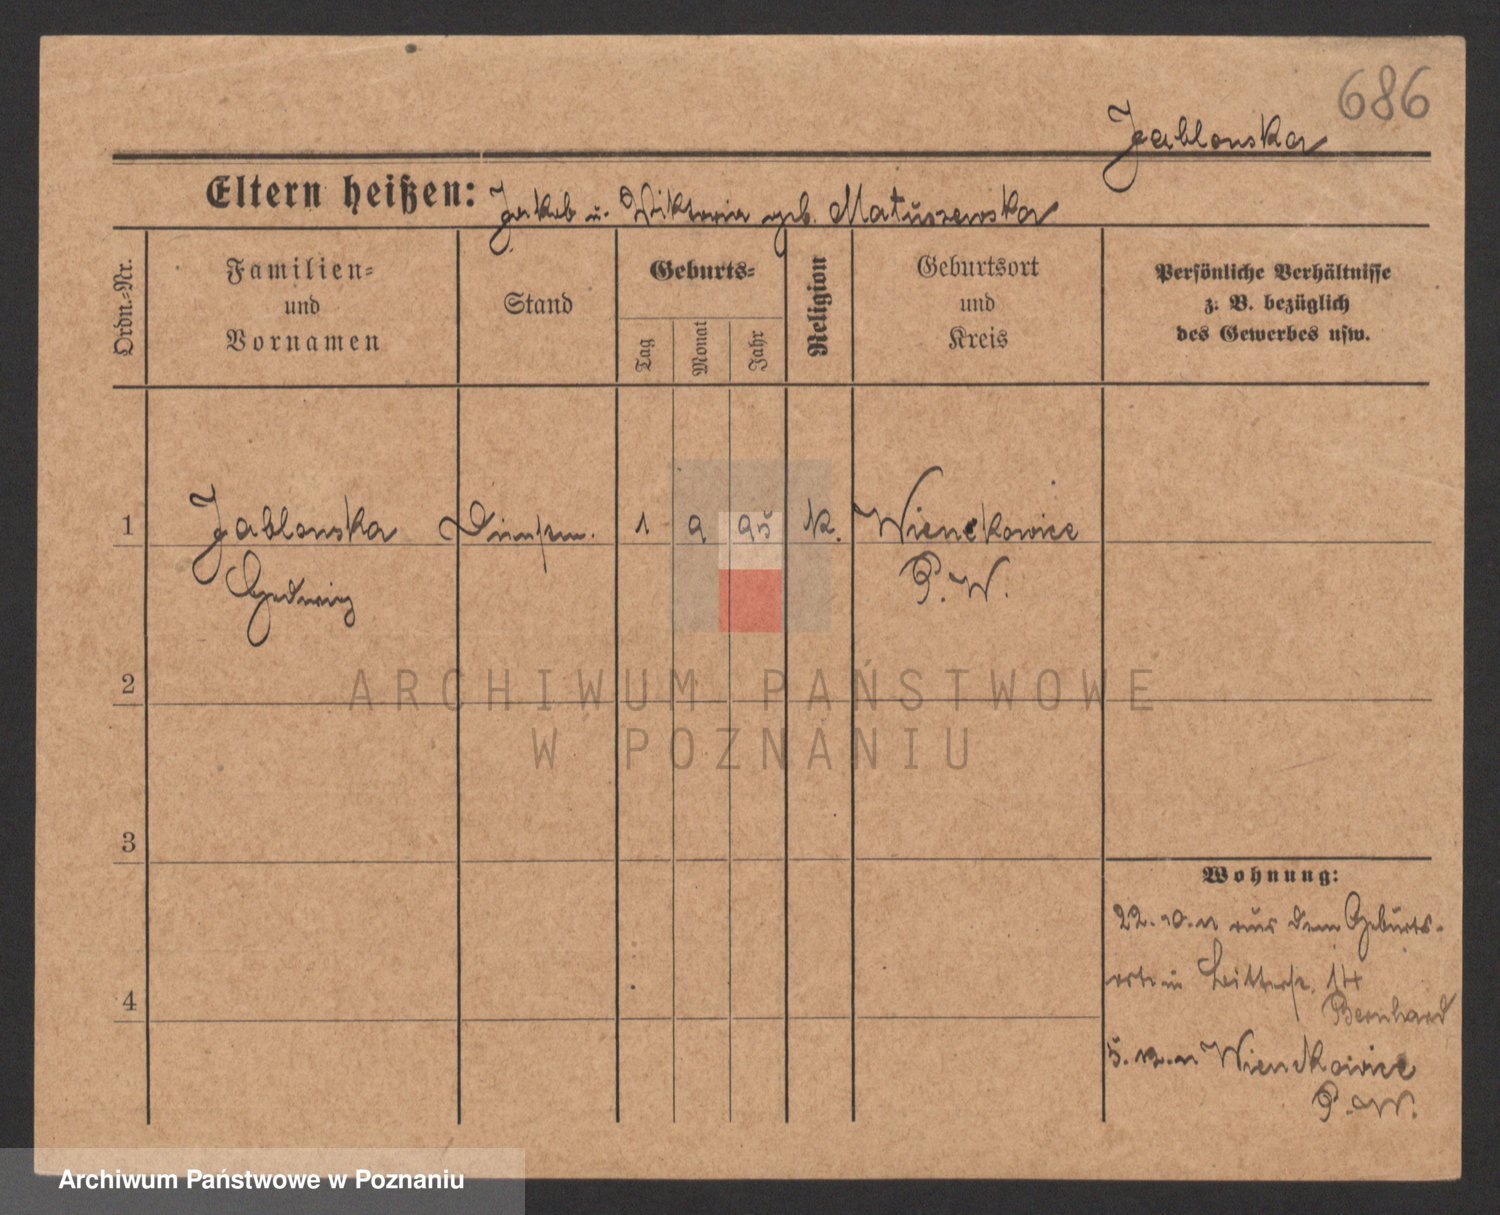 686
Jablonska
Eltern heißen: Jakob u. Viktoria geb. Matuszewska
Ordn.-Nr.
Familien-
und
Vornamen
Stand
Geburts-
Tag
Monat
Jahr
Religion
Geburtsort
und
Kreis
Persönliche Verhältnisse
z. B. bezüglich
des Gewerbes usw.
1 Jablonska 1 9 95 k. Wienckowice
Hedwig P. W.
2
3
4
Wohnung:
22.10.11 aus dem Geburts-
orte in Ritterstr. 14
Bernhard
5.12.11 Wienckowice
P. W.
ARCHIWUM PAŃSTWOWE
W POZNANIU
Archiwum Państwowe w Poznaniu